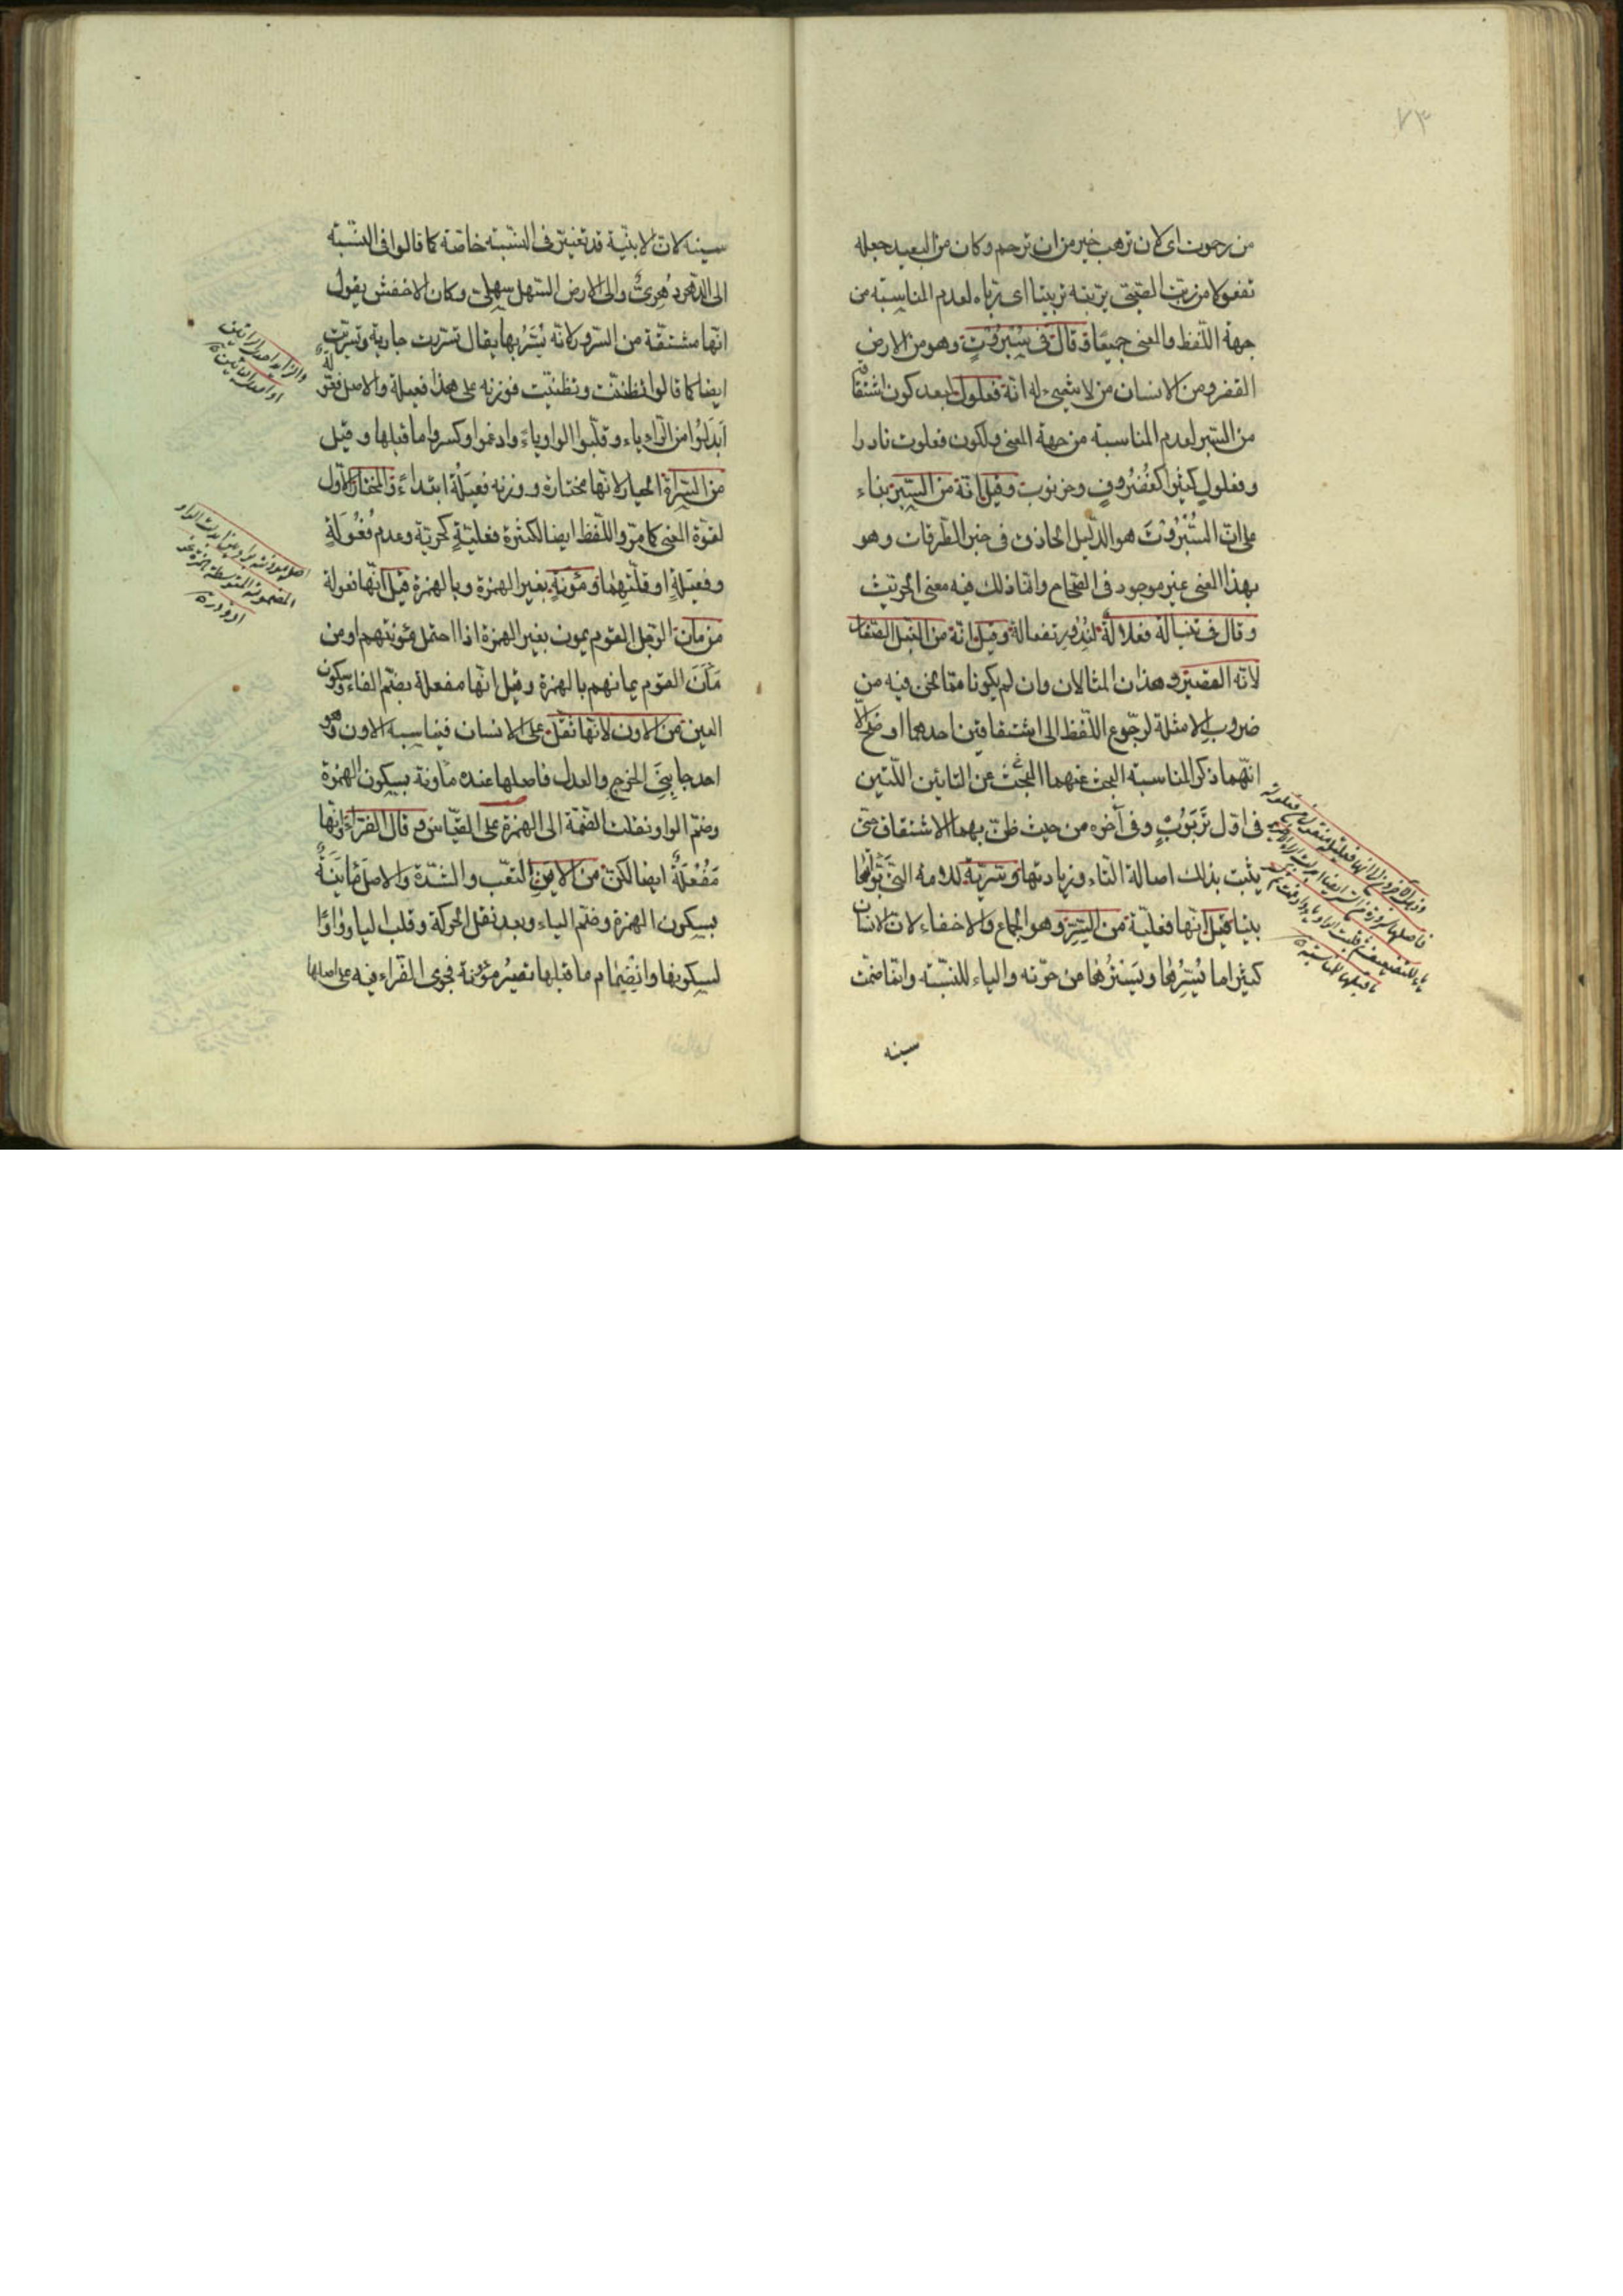 ٧٣
من رحموت اى لان ترهب خير من ان ترحم وكان من البعيد جعله
تفعولا من ربت الصبىّ يربته تربيتا اى ربّاه لعدم المناسبة من
جهة اللّفظ والمعنى جميعًا وقال فى سُبْرُوْتٍ وهو من الارض
القفر ومن الانسان من لا شىء له انّه فعلول لبعد كون اشتقاقه
من السبر لعدم المناسبة من جهة المعنى ولكون فعلوت نادرا
وفعلولٍ كثيرا كغُضْرُوفٍ وخرنوب وقيل انّه من السّبر بناء
على ان السُّبْرُوْتَ هو الدّليل الحاذق فى خبر الطّرقات وهو
بهذا المعنى غير موجود فى الصّحاح وانّما ذلك فيه معنى الخرّيت
وقال فى تنبالة فعلالة لنُدُور تفعالة وقيل انّه من النّبل الصّغار
لانّه القصير وهذان المثالان وان لم يكونا ممّا نحن فيه من
ضروب الامثلة لرجوع اللّفظ الى اشتقاقين احدهما اوضح الّا
انّهما ذكرا لمناسبة البحث عنهما البحث عن التائين اللّتين
فى اوّل تَرَبُوْتٍ وفى آخره من حيث ظنّ بهما الاشتقاق حتى
يثبت بذلك اصالة التّاء وزيادتها وسُرّيّة للامة التى بوّأتها
بيتا قيل انّها فعليّة من السّرّ وهو الجماع والاخفاء لانّ الانسان
كثيرا ما يُسِرُّها ويَسْتُرُها من حرّته والياء للنّسبة وانّما ضمّت
سينه
سينه لانّ الابنية قد تغيّر فى النّسبة خاصّة كما قالوا فى النّسبة
الى الدّهر دُهرىٌّ والى الارض السّهل سهلىّ وكان الاخفش يقول
انّها مشتقّة من السّرور لانّه يُسَرُّ بها يقال تسرّرت جارية وتسرّيت
ايضا كما قالوا تظنّنت وتظنّيت فوزنه على هذا فعيلة والاصل فعّولة
اَبدَلُوا من الرّاء ياء وقلبوا الواو ياءً وادغموا وكسروا ما قبلها وقيل
من السّراة الخيار لانّها مختارة ووزنه فعيلة ابتداءً والمختار الاوّل
لقوّة المعنى كما مرّ واللّفظ ايضا لكثرة فعليّةٍ كحرّيّة وعدم فُعُّولَةٍ
وفعيّلةٍ او قلّتهما ومَؤنةٍ بغير الهمزة وبالهمزة قيل انّها فعولة
من مان الرّجل القوم يمون بغير الهمزة اذا احتمل مؤنتهم او من
مَأَنَ القوم يمانهم بالهمزة وقيل انّها مفعلة بضمّ الفاء وسكون
العين من الاون لانّها ثقل على الانسان فيناسبه الاون وهو
احد جانبَىِ الخرج والعدل فاصلها عنده مأونة بسكون الهمزة
وضمّ الواو نقلت الضّمّة الى الهمزة على القياس وقال الفرّاء انّها
مَفْعُلَةٌ ايضا لكن من الاَيْنِ التّعب والشّدّة والاصل مَأْيُنَةٌ
بسكون الهمزة وضمّ الياء وبعد نقل الحركة وقلب الياء واوًا
لسكونها وانضِمَام ما قبلها تصيرُ مؤنة فجرى الفرّاء فيه على اصلها